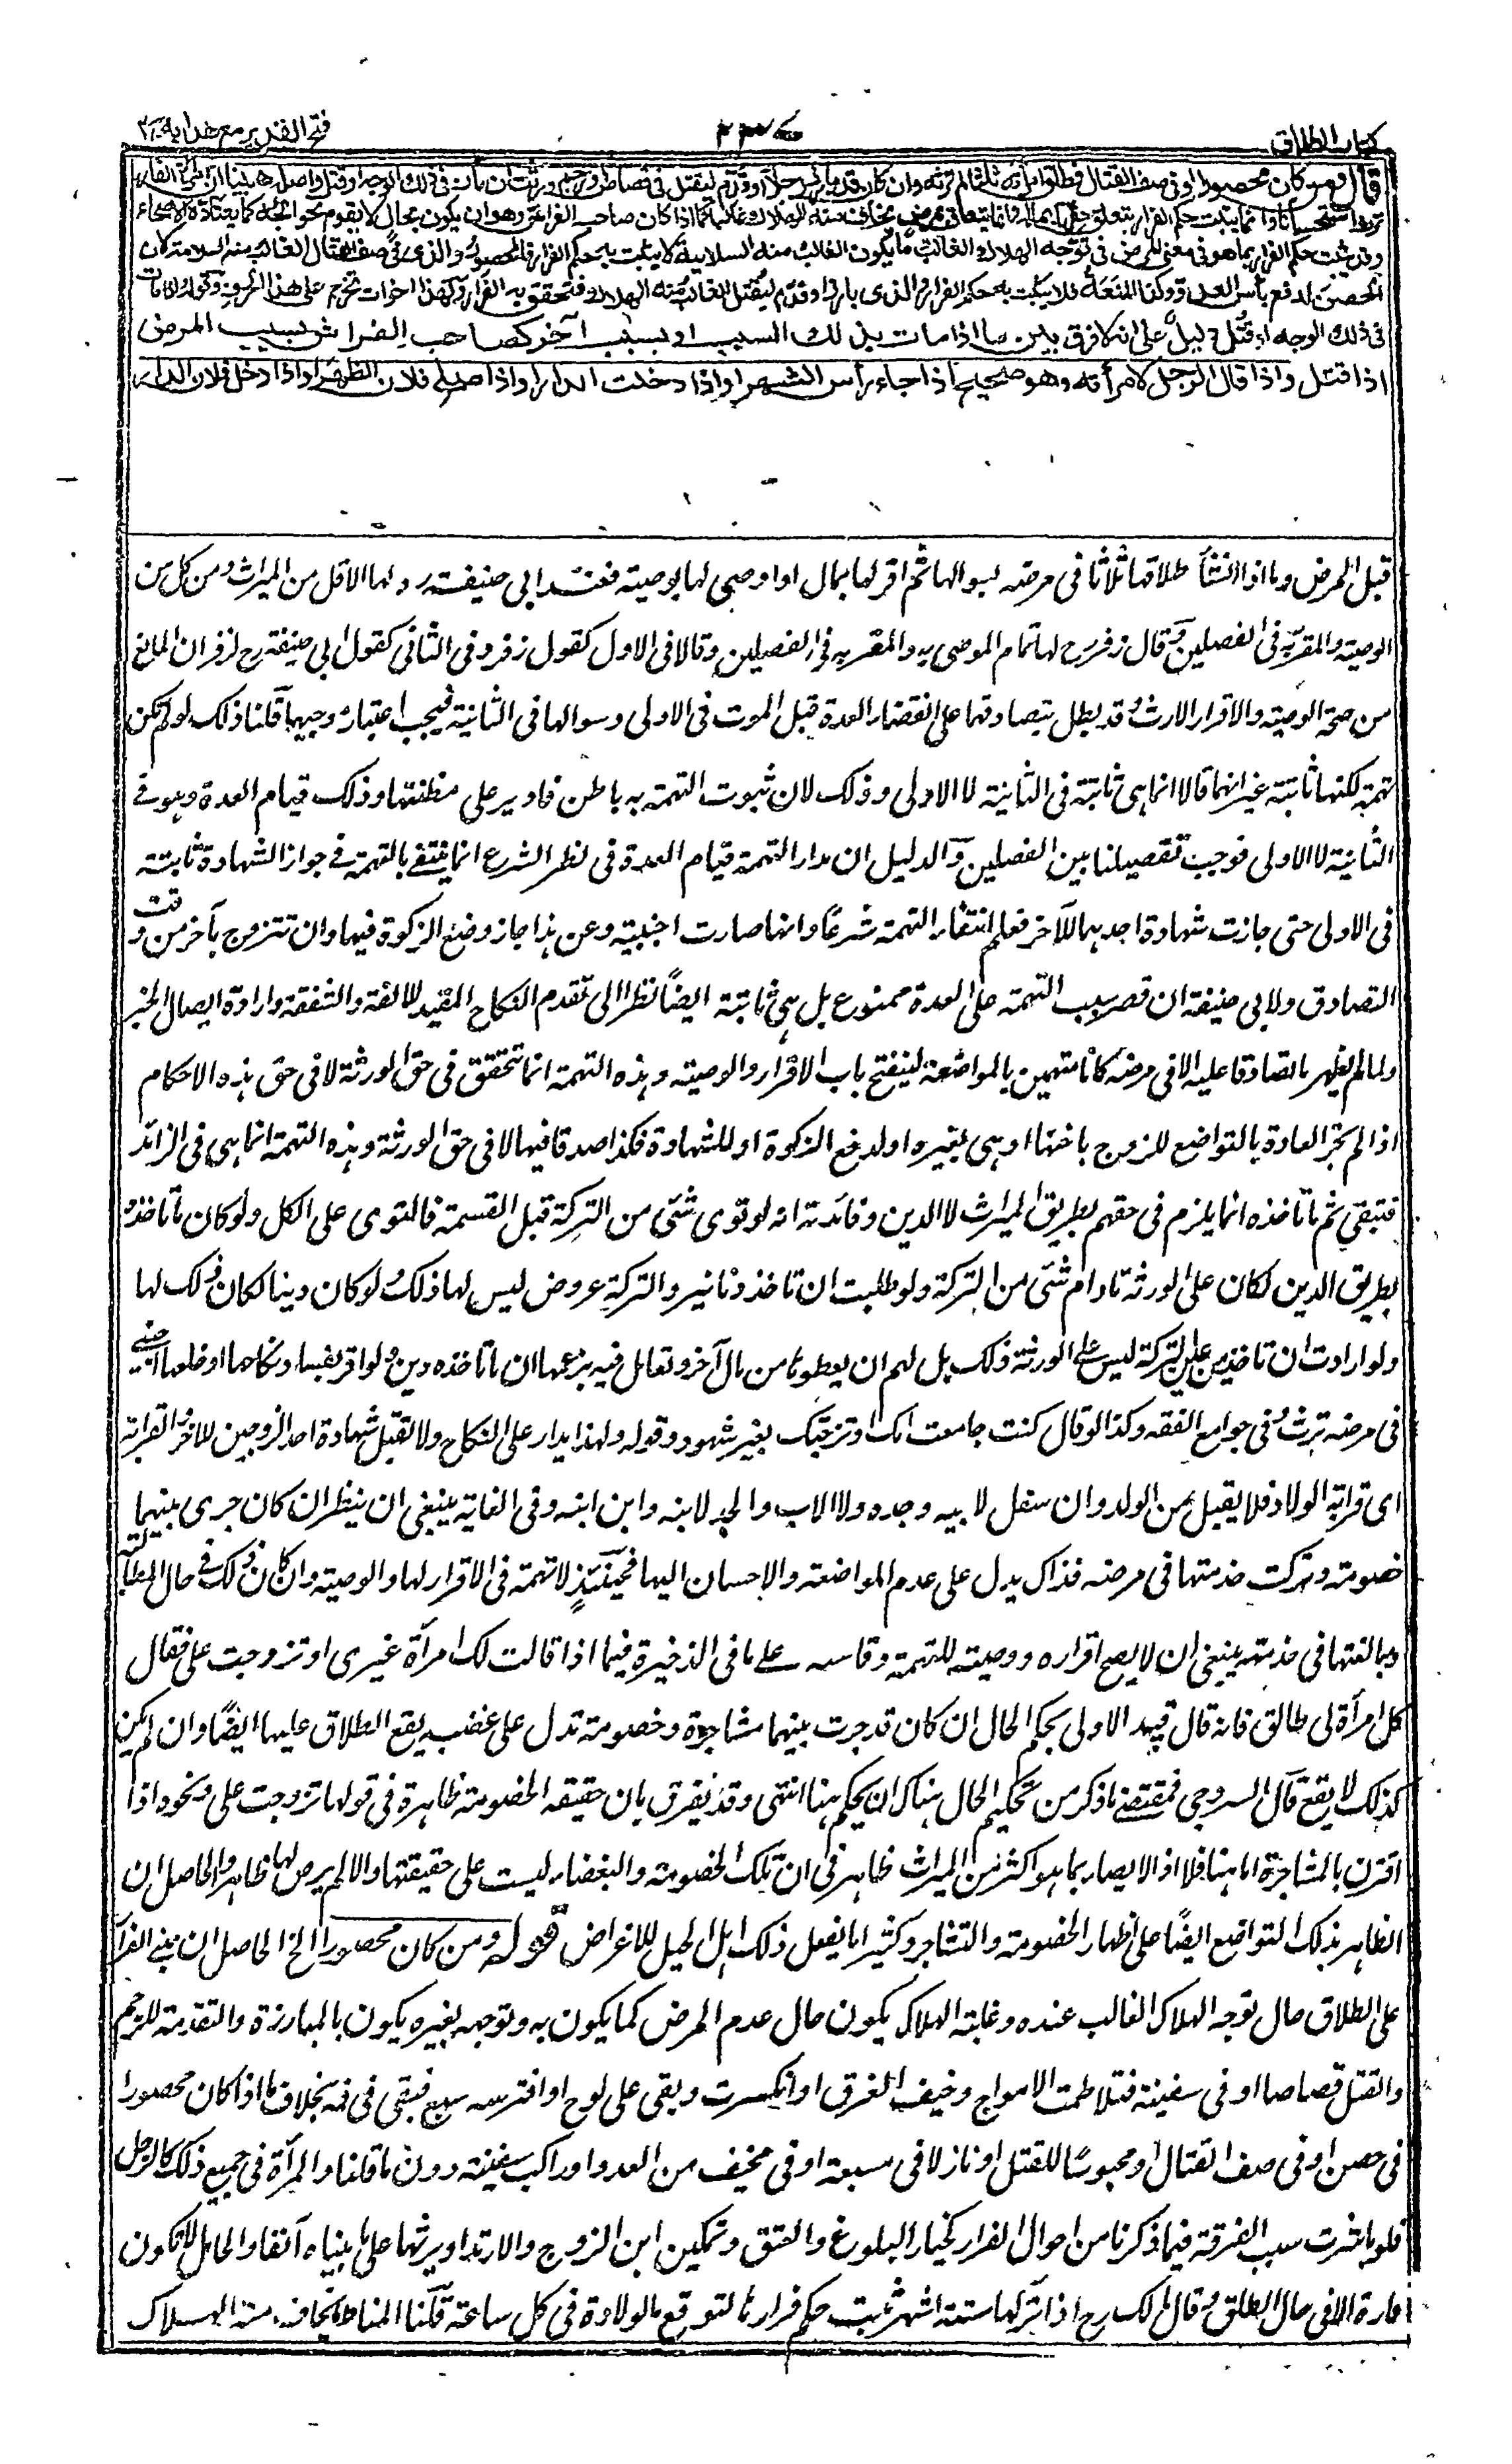 كتاب الطلاق
٢٣٧
فتح القدير مع هداية ج٢
قال ومن كان محصورا او في صف القتال فطلق امرأته ثلثا لم ترثه وان كان قد بارز رجلا او قدم ليقتل في قصاص او رجم ورثت ان مات في ذلك الوجه او قتل واصله ما بينا ان امرأة الفار
ترث استحسانا وانما يثبت حكم الفرار بتعلق حقها بماله وانما يتعلق بمرض يخاف منه الهلاك غالبا كما اذا كان صاحب الفراش وهو ان يكون بحال لا يقوم بحوائجه كما يعتاده الاصحاء
وقد يثبت حكم الفرار بما هو في معنى المرض في توجه الهلاك الغالب وما يكون الغالب منه السلامة لا يثبت به حكم الفرار فالمحصور والذي في صف القتال الغالب منه السلامة لان
الحصن لدفع بأس العدو وكذا المنعة فلا يثبت به حكم الفرار والذي بارز او قدم ليقتل الغالب منه الهلاك فتحقق به الفرار ولهذا اخوات تخرج على هذا الحرف وقوله اذا مات
في ذلك الوجه او قتل دليل على انه لا فرق بين ما اذا مات بذلك السبب او بسبب آخر كصاحب الفراش بسبب المرض
اذا قتل واذا قال الرجل لامرأته وهو صحيح اذا جاء رأس الشهر او اذا دخلت الدار او اذا صلى فلان الظهر او اذا دخل فلان الدار
قبل المرض وما اذا انشأ طلاقها ثلاثا في مرضه بسوالها ثم اقر لها بمال او اوصى لها بوصية فعند ابي حنيفة رح لها الاقل من الميراث ومن كل من
الوصية والمقر به في الفصلين وقال زفر رح لها تمام الموصى به والمقر به في الفصلين وقالا في الاول كقول زفر وفي الثاني كقول ابي حنيفة رح لزفر ان المانع
من صحة الوصية والاقرار الارث وقد بطل بتصادقهما على انقضاء العدة قبل الموت في الاولى وسوالها في الثانية فيجب اعتبار موجبهما قلنا ذلك لو لم تكن
تهمة لكنها ثابتة غير انهما قالا انما هي ثابتة في الثانية لا الاولى وذلك لان ثبوت التهمة به باطن فادير على مظنتها وذلك قيام العدة وهو في
الثانية لا الاولى فوجب تفصيلنا بين الفصلين والدليل ان مدار التهمة قيام العدة في نظر الشرع انما ينتفي بالتهمة في جواز الشهادة ثابتة
في الاولى حتى جازت شهادة احدهما للآخر فعلم انتفاء التهمة شرعا وانها صارت اجنبية وعن هذا جاز وضع الزكوة فيها وان تتزوج بآخر من وقت
التصادق ولابي حنيفة ان قصر سبب التهمة على العدة ممنوع بل هي ثابتة ايضا نظرا الى تقدم النكاح المفيد للالفة والشفقة وارادة ايصال الخير
ولما لم يظهر ما تصادقا عليه الا في مرضه كانا متهمين بالمواضعة لينفتح باب الاقرار والوصية وهذه التهمة انما تتحقق في حق الورثة لا في حق هذه الاحكام
اذا لم تجر العادة بالتواضع للزوج باختها او هي بغيره او لدفع الزكوة او للشهادة فلذا صدقا فيها لا في حق الورثة وهذه التهمة انما هي في الزائد
فتبقى ثم ما تاخذه انما يلزم في حقهم بطريق الميراث لا الدين وفائدته انه لو توى شئ من التركة قبل القسمة فالتوى على الكل ولو كان ما تاخذه
بطريق الدين لكان على الورثة ما دام شئ من التركة ولو طلبت ان تاخذ دنانير والتركة عروض ليس لها ذلك ولو كان دينا لكان ذلك لها
ولو ارادت ان تاخذ من عين التركة ليس على الورثة ذلك بل لهم ان يعطوها من مال آخر وتعامل فيه بزعمها ان ما تاخذه دين ولو اقر بفساد نكاحها او خلعها اجنبي
في مرضه ترث وفي جوامع الفقه وكذا لو قال كنت جامعت امك او تزوجتك بغير شهود وقوله ولهذا يدار على النكاح ولا تقبل شهادة احد الزوجين للآخر والقرابة
اي قرابة الولاد فلا يقبل من الولد وان سفل لابيه وجده ولا الاب والجد لابنه وابن ابنه وفي الغاية ينبغي ان ينظر ان كان جرى بينهما
خصومة وتركت خدمتها في مرضه فذاك يدل على عدم المواضعة والاحسان اليها فحينئذ لا تهمة في الاقرار لها والوصية وان كان ذلك في حال المطالبة
ومبالغتها في خدمته ينبغي ان لا يصح اقراره ووصيته للتهمة وقاسه على ما في الذخيرة فيما اذا قالت لك امرأة غيري او تزوجت علي فقال
كل امرأة لي طالق فانه قال قيد الاولى بحكم الحال ان كان قد جرت بينهما مشاجرة وخصومة تدل على غضب يقع الطلاق عليها ايضا وان لم يكن
كذلك لا يقع قال السروجي فمقتضى ما ذكر من تحكيم الحال هناك ان يحكم هنا انتهى وقد يفرق بان حقيقة الخصومة ظاهرة في قولها تزوجت علي ونحوه اذا
اقترن بالمشاجرة اما هنا فلا اذ الايصاء بما هو اكثر من الميراث ظاهر في ان تلك الخصومة والبغضاء ليست على حقيقتها والا لم يوص لها ظاهرا والحاصل ان
الظاهر بذلك التواضع ايضا على اظهار الخصومة والتشاجر وكثيرا ما يفعل ذلك اهل الحيل للاغراض قوله ومن كان محصورا الخ الحاصل ان مبنى الفرار
على الطلاق حال توجه الهلاك الغالب عنده وغلبة الهلاك يكون حال عدم المرض كما يكون به وتوجهه بغيره يكون بالمبارزة والتقدمة للرجم
والقتل قصاصا او في سفينة فتلاطمت الامواج وخيف الغرق او انكسرت وبقي على لوح او افترسه سبع فبقي في فمه بخلاف ما اذا كان محصورا
في حصن او في صف القتال او محبوسا للقتل او نازلا في مسبعة او في مخيف من العدو او راكب سفينة دون ما قلنا والمرأة في جميع ذلك كالرجل
فلو باشرت سبب الفرقة فيما ذكرنا من احوال الفرار كخيار البلوغ والعتق وتمكين ابن الزوج والارتداد يرثها على ما بيناه آنفا والحامل لا تكون
فارة الا في حال الطلق وقال مالك رح اذا تم لها ستة اشهر ثبت حكم فرارها لتوقع الولادة في كل ساعة قلنا المناط ما يخاف منه الهلاك